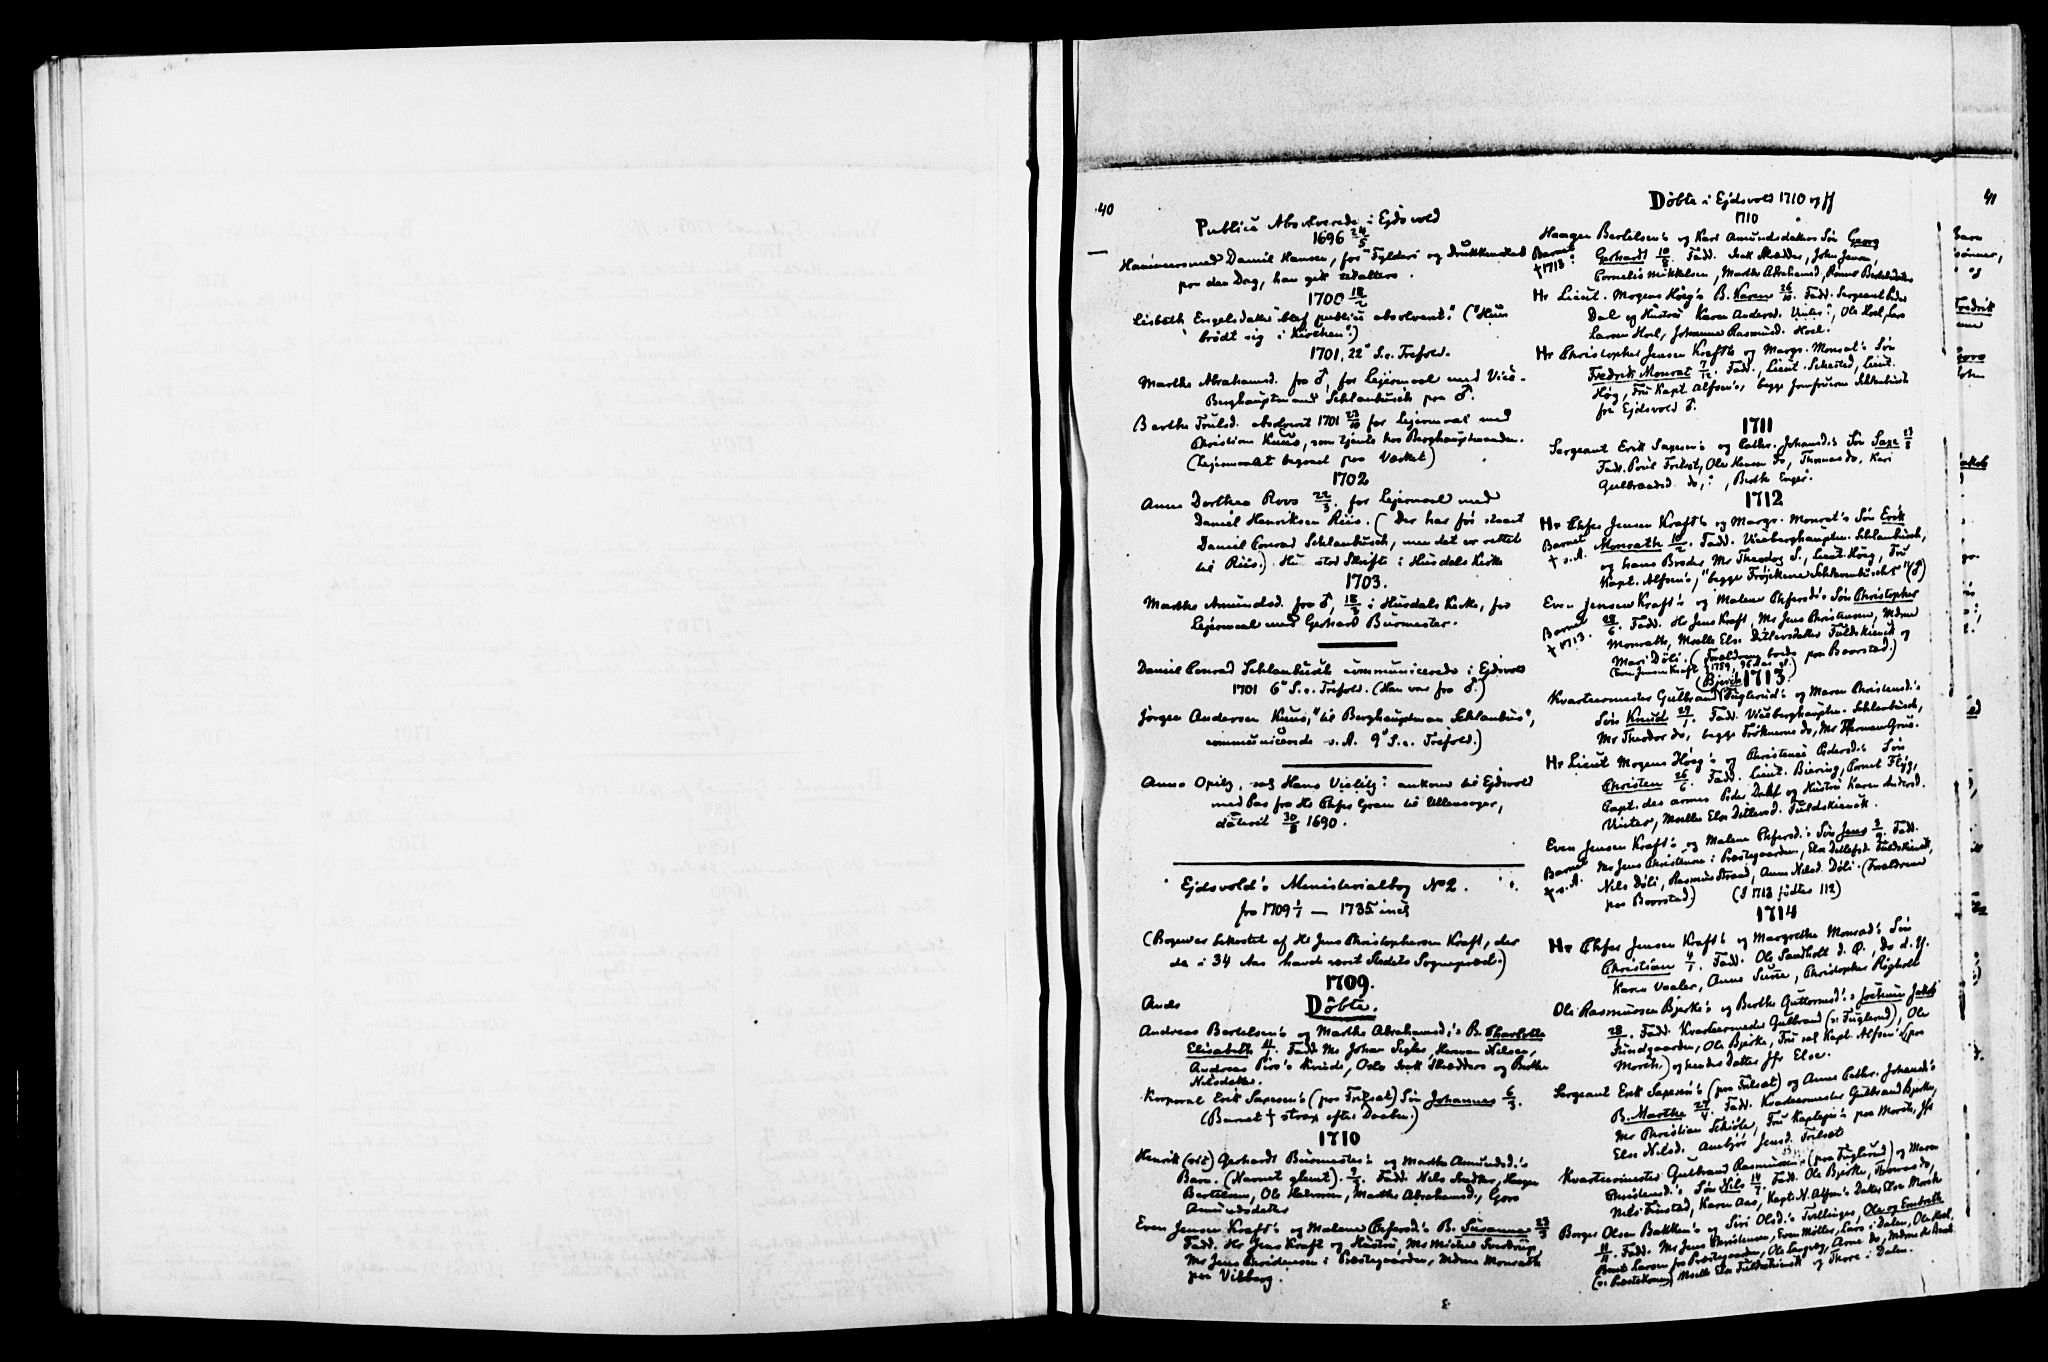 40
Publice Absolverede i Ejdsvold
1696 24/5
Hammersmed Daniel Hansen, for "Fylderi og Drukkenskab
paa den Dag, han gik til Alters.
1700 18/2
Lisbeth Engelsdatter blef publice absolveret." ("Huus
brödt sig i Kirchen".)
1701, 22° S. e. Trefold.
Marthe Abrahamsd. fra ♂, for Lejermaal med Vice-
Berghauptmand Schlanbusch paa ♂.
Berthe Trulsd. absolveret 1701 23/10 for Lejermaal med
Christian Knus, som tjente hos Berghauptmanden.
(Lejermaalet begaaet paa Værket)
1702
Anne Dorthea Roos 22/3 for Lejermaal med
Daniel Henriksen Riis. (Der har för staaet
Daniel Conrad Schlanbusch, men det er rettet
til Riis.) Hu stod Skrifte i Husdals Kirke
1703.
Marthe Amundsd. fra ♂, 18/3 i Husdals Kirke, for
Lejermaal med Gerhard Burmester.
Daniel Conrad Schlanbusch communicerede i Ejdsvold
1701 6° S. e. Trefold. (Han var fra ♂.)
Jörgen Andersen Knus, "til Berghauptman Schlanbus",
communicerede s. A. 9° S. e. Trefold.)
Anne Opitz, sal Hans Vislitz: ankom til Ejdsvold
med Pas fra Hr Chfer Gram til Ullensager,
dateret 30/8 1690.
Ejdsvold's Ministerialbog No 2.
fra 1709 1/1 — 1735 incl
(Bogen er bekostet af Hr Jens Christophersen Kraft, der
da i 34 Aar havde været Stedets Sognepræst.)
1709.
Ands Döbte.
Andreas Bertelsen's og Marthe Abrahamsd.'s B. Charlotte
Elisabeth 4/1. Fadd. Mr Johan Sigler, Herman Nilsen,
Andreas Piro's Kvinde, Oslo Isak Skrædders og Berthe
Nilsdatter.
Korporal Erik Saxesen's (paa Trilsat) Sön Johannes 6/3.
(Barnet † strax efter Daaben.)
1710
Henrik (rét) Gerhardt Burmester's og Marthe Amundsd.'s
Barn. (Navnet glemt). 2/2. Fadd. Nils Snedker, Haagen
Bertelsen, Ole Halvorsen, Marthe Abrahamsd., Goro
Amundsdatter
Even Jensen Kraft's og Malene Chfersd.'s B. Susanna 23/3
Fadd. Hr Jens Kraft og Hustru, Mr Michel Sverdrup,
Mr Jens Christensen i Præstegaarden, Mdme Monrath
paa Vilberg.
Döbte i Ejdsvold 1710 og ff
1710
Haagen Bertelsen's og Kari Amundsdatters Sön Georg
Barnet † 1713. Gerhardt 10/8. Fadd. Isak Skrædder, John Jensen,
Cornelis Mikkelsen, Marthe Abrahamsd, Ranne Bertelsdatter
Hr Lieut. Mogens Höeg's B. Karen 26/10. Fadd. Sergeant Peder
Dal og Hustru Karen Andersd. Vinter", Ole Hoel, Lars
Larsen Hoel, Johanne Rasmusd. Hoel.
Hr Christopher Jensen Kraft's og Margr. Monrat's Sön
Fredrik Monrat 7/12. Fadd., Lieut. Sehested, Lieut.
Höeg, Fru Kapt. Alfsen's, begge Jomfruerne Schlanbusch
fra Ejdsvold ♂.
1711
Sergeant Erik Saxesen's og Cathr. Johansd.'s Sön Saxe 23/8
Fadd. Poul Trilsat, Ole Hansen do, Thomas do, Kari
Gulbrandsd do, , Berthe Enger.
1712
Hr Chfer Jensen Kraft's og Margr. Monrat's Sön Erik
Barnet † s. A. Monrath 10/2. Fadd. Viceberghauptm. Schlanbusch,
og hans Broder Mr Theodor S., Lieut. Höeg, Fru
Kapt. Alfsen's, "begge Fröjkerne Schlanbusch's" (♂)
Even Jensen Kraft's og Malene Chfersd's Sön Christopher
Barnet † 1713. 28/6. Fadd. Hr Jens Kraft, Mr Jens Christensen, Mdme
Monraths, Mselle Else Ditlevsdatter Fuldskienik og
Mari Döli. (Forældrene boede paa Baarstad.)
(Even Jensen Kraft † 1759, 96 Aar gl.)
1713
(Bjerke)
Kvartermester Gulbrand Fuglerud's og Maren Christensd.'s
Sön Knud 29/1. Fadd. Viceberghauptm. Schlanbusch,
Mr Theodor do, begge Fröknerne do, Mr Herman Grus.
Hr Lieut Mogens Höeg's og Christence Pedersd.'s Sön
Christen 26/6. Fadd. Lieut. Biering, Cornet Flyg,
Capt. des armes Peder Dahl og Hustru Karen Andersd.
Vinter, Mselle Else Ditlevsd. Fuldskienik.
Even Jensen Kraft's og Malene Chfersd.'s Sön Jens 3/9. Fadd.
Barnet † s. A. Mr Jens Christensen i Præstegaarden, Else Detlefsd. Fuldskienik,
Nils Döli, Rasmus Strand, Anne Nilsd. Döli. (Forældrene
paa Baarstad.) (I 1713 födtes 112)
1714
Hr Chfer Jensen Kraft's og Margrethe Monrad's Sön
Christian 4/1. Fadd. Ole Sandholt d. Æ., do d. Y.
Karen Vaaler, Anne Sune, Christopher Rögholt
Ole Rasmussen Bjerke's og Berthe Guttormsd.'s Jochum Jakob
28. Fadd. Kvartermester Gulbrand (∂: Fuglerud), Ole
Sundgaarden, Ole Bjerke, Fru sal Kapt. Alfsen's (paa
Morch.) og hendes Datter Jfr Else.
Sergeant Erik Saxesen's (paa Trilsat) og Anne Cathr. Johansd's
B. Marthe 27/4. Fadd. Kvartermester Gulbrand Bjerke,
Mr Christian Schiöte, Fru Kaptejn's paa Morch, Jfr
Else Nilsd. Ambjör Jensd. Trilsat
Kvartermester Gulbrand Rasmussen's (paa Fuglerud) og Maren
Christensd.'s Sön Nils 14/7. Fadd. Ole Bjerke, Thomas do,
Nils Finstad, Karen Aas, Kapt. N. Alfsen's Datter Else Morch
Borger Olsen Bakken's og Siri Olsd.'s Tvillinger, Ole og Engebreth
11/11. Fadd. Mr Jens Christensen, Even Möller, Lars i Dalen, Ole Hoel,
Berit Larsen fra Præstegaarden, Ole Langreg, Arne do,
(∂: Præstekonen) Mselle Else Fuldskienik og Thore i Dalen.
41
Fredrik
Jakob
og